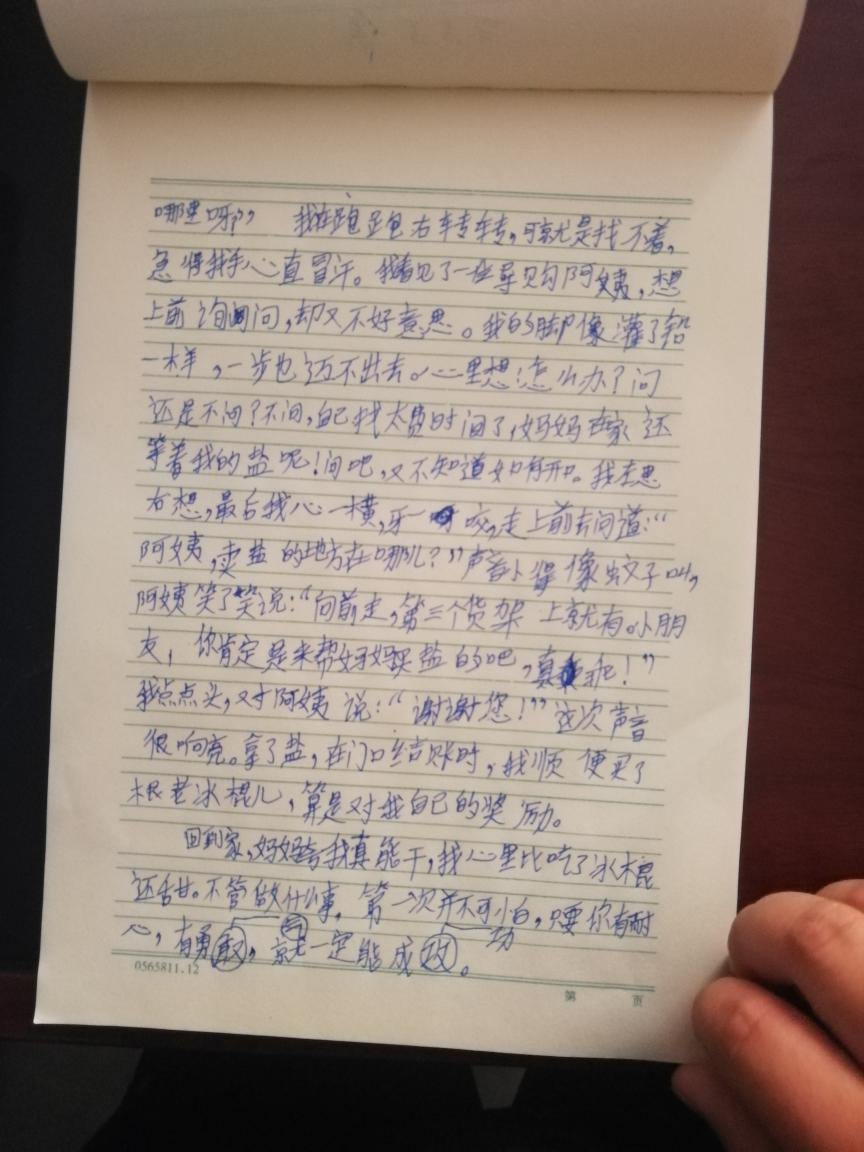 哪里呀?” 我左跑跑右转转,可就是找不着,
急得我手心直冒汗。我看见了一位导购阿姨,想
上前询问,却又不好意思。我的脚像灌了铅
一样,一步也迈不出去。心里想:怎么办?问
还是不问?不问,自己找太费时间了,妈妈在家还
等着我的盐呢!问吧,又不知道如何开口。我左思
右想,最后我心一横,牙一咬,走上前去问道:“
阿姨,卖盐的地方在哪儿?”声音小得像蚊子叫,
阿姨笑了笑说:“向前走,第三个货架上就有。小朋
友,你肯定是来帮妈妈买盐的吧,真乖!”
我点点头,对阿姨说:“谢谢您!”这次声音
很响亮。拿了盐,在门口结账时,我顺便买了
根老冰棍儿,算是对我自己的奖励。
回到家,妈妈夸我真能干,我心里比吃了冰棍
还甜。不管做什么事,第一次并不可怕,只要你有耐
心,有勇敢,就一定能成政。
气
功
0565811.12
第 页